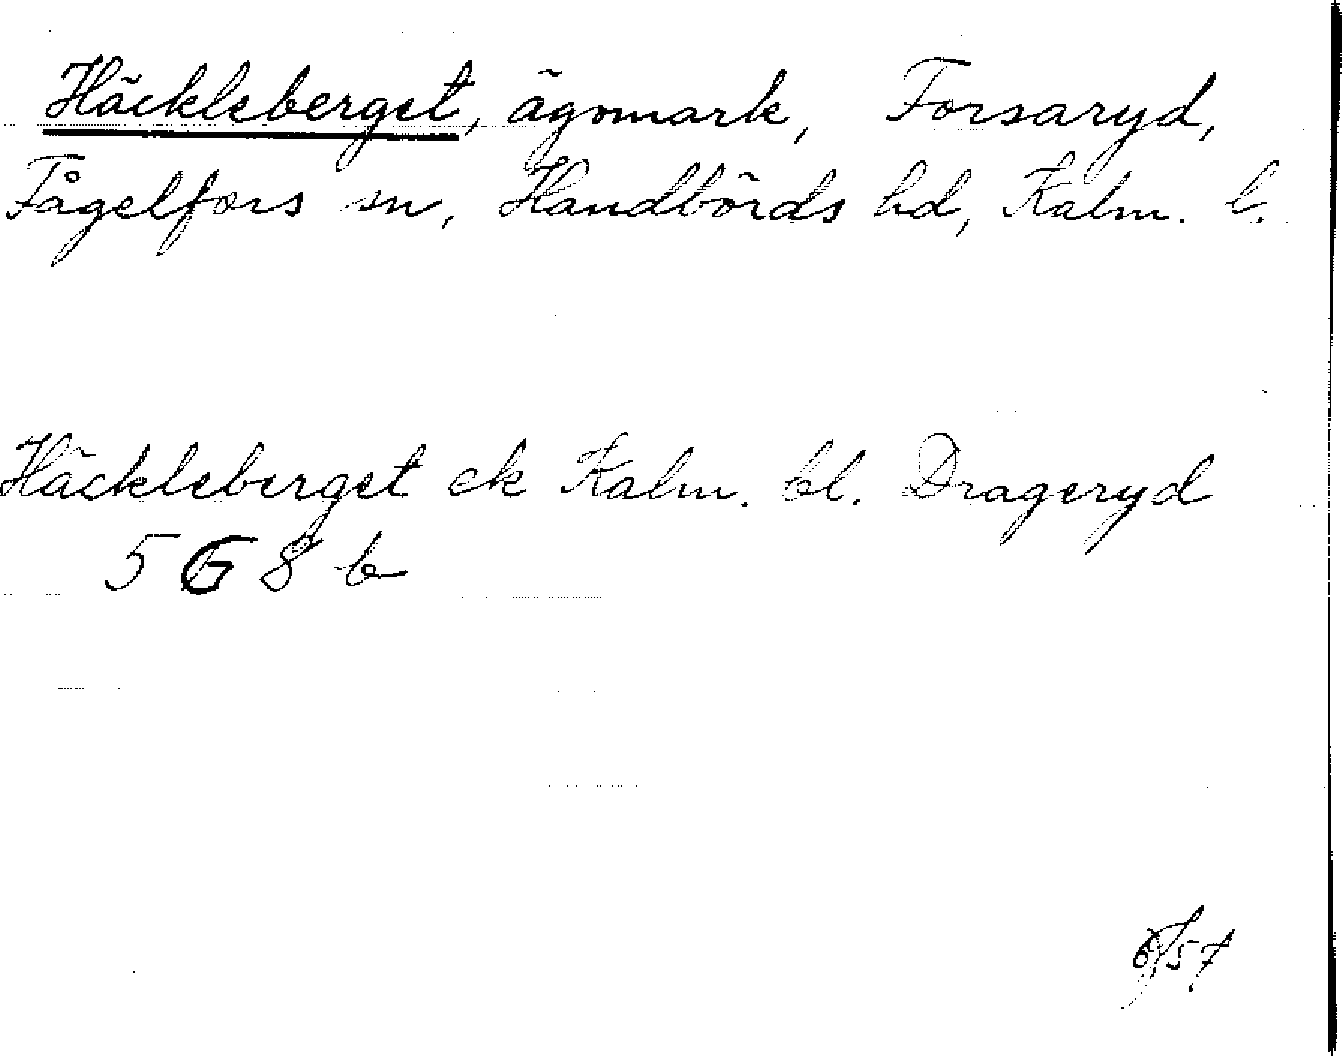 Häckleberget, ägomark, Forsaryd,
Fågelfors sn, Handbörds hd, Kalm. l.
Häckleberget ek Kalm. bl. Drageryd
5 G 8 b
6/57